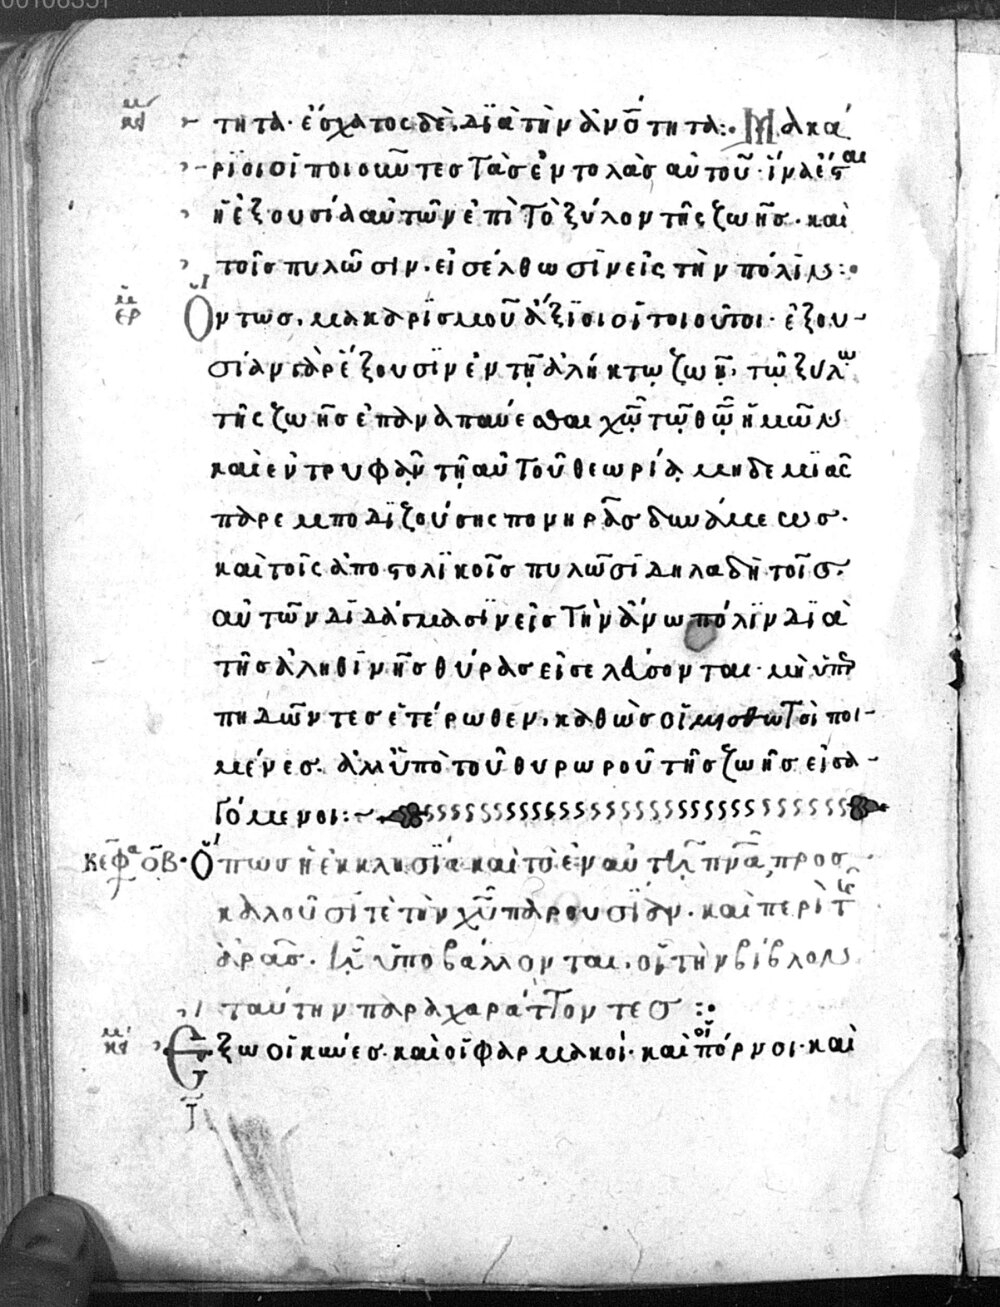 κει
τητα· ἔσχατος δὲ, διὰ τὴν ἀνοτητα:· Μακά
ριοι οἱ ποιοῦντες τὰς ἐντολὰς αὐτοῦ· ἵνα ἔσται
ἡ ἐξουσία αὐτῶν ἐπὶ τὸ ξύλον τῆς ζωῆς· καὶ
τοῖς πυλῶσιν· εἰσέλθωσιν εἰς τὴν πόλιν:·
ερ
Ὄντως, μακαρισμοῦ ἄξιοι οἱ τοιοῦτοι· ἐξου-
σίαν γὰρ ἕξουσιν ἐν τῇ ἀλήκτῳ ζωῇ, τῷ ξύλῳ
τῆς ζωῆς ἐπαναπαύεσθαι χῷ τῷ θῷ ἡμῶν
καὶ ἐντρυφᾶν τῇ αὐτοῦ θεωρίᾳ μηδεμιᾶς
παρεμποδιζούσης πονηρᾶς δυνάμεως·
καὶ τοῖς ἀποστολικοῖς πυλῶσι δηλαδὴ τοῖς
αὐτῶν διδάγμασιν εἰς τὴν ἄνω πόλιν διὰ
τῆς ἀληθινῆς θύρας εἰσελάσονται· μὴ ὑπερ
πηδῶντες ἑτέρωθεν, καθὼς οἱ μισθωτοὶ ποι-
μένες. ἀλλ ὑπὸ τοῦ θυρωροῦ τῆς ζωῆς εἰσα-
γόμενοι:~
κεφα οβ· Ὅπως ἡ ἐκκλησία καὶ τὸ ἐν αὐτῇ πνα, προς
καλοῦσί τε τὴν χῦ παρουσίαν· καὶ περὶ τῆς
ἀρᾶς· ᾗ ὑποβάλλονται, οἱ τὴν βίβλον
ταύτην παραχαράττοντες:·
κει
Ἔξω οἱ κύνες· καὶ οἱ φαρμακοί· καὶ οἱ πόρνοι· καὶ